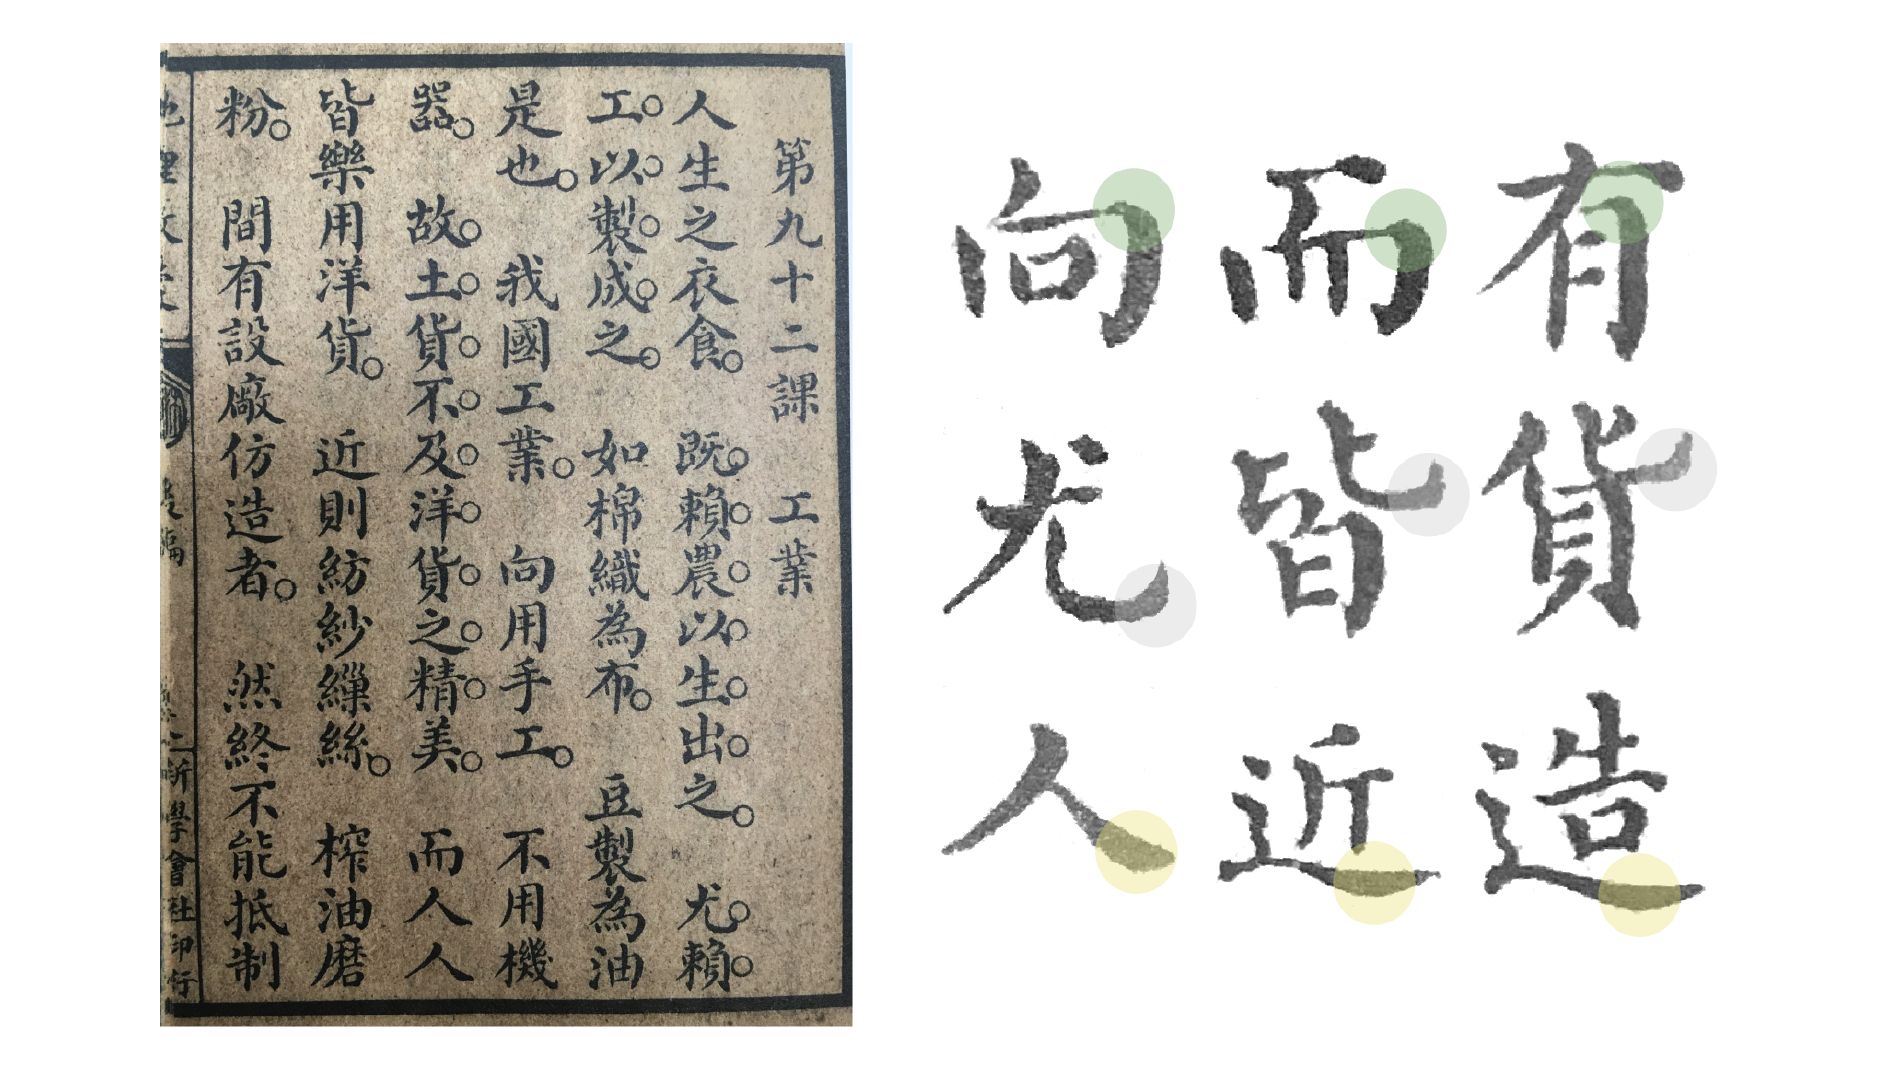 第九十二課　工業
人生之衣食。　既賴農以生出之。　尤賴
工以製成之。　如棉織為布。　豆製為油
是也。　我國工業。　向用手工。　不用機
器。　故土貨不及洋貨之精美。　而人人
皆樂用洋貨。　近則紡紗繅絲。　榨油磨
粉。　間有設廠仿造者。　然終不能抵制
新學會社印行
向而有
尤皆貨
人近造